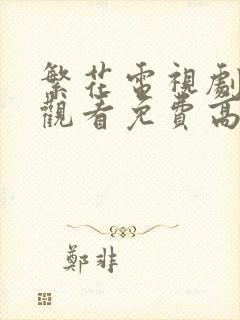 繁花電視劇
觀看免費高
鄭非